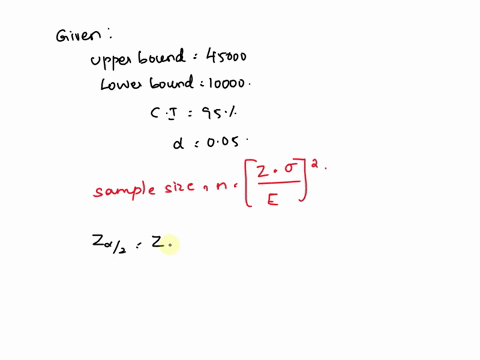 Given:
upper bound = 45000
Lower bound = 10000.
C.I = 95.%
α = 0.05.
sample size, n = [Z • σ / E]².
Zα/2 = Z.